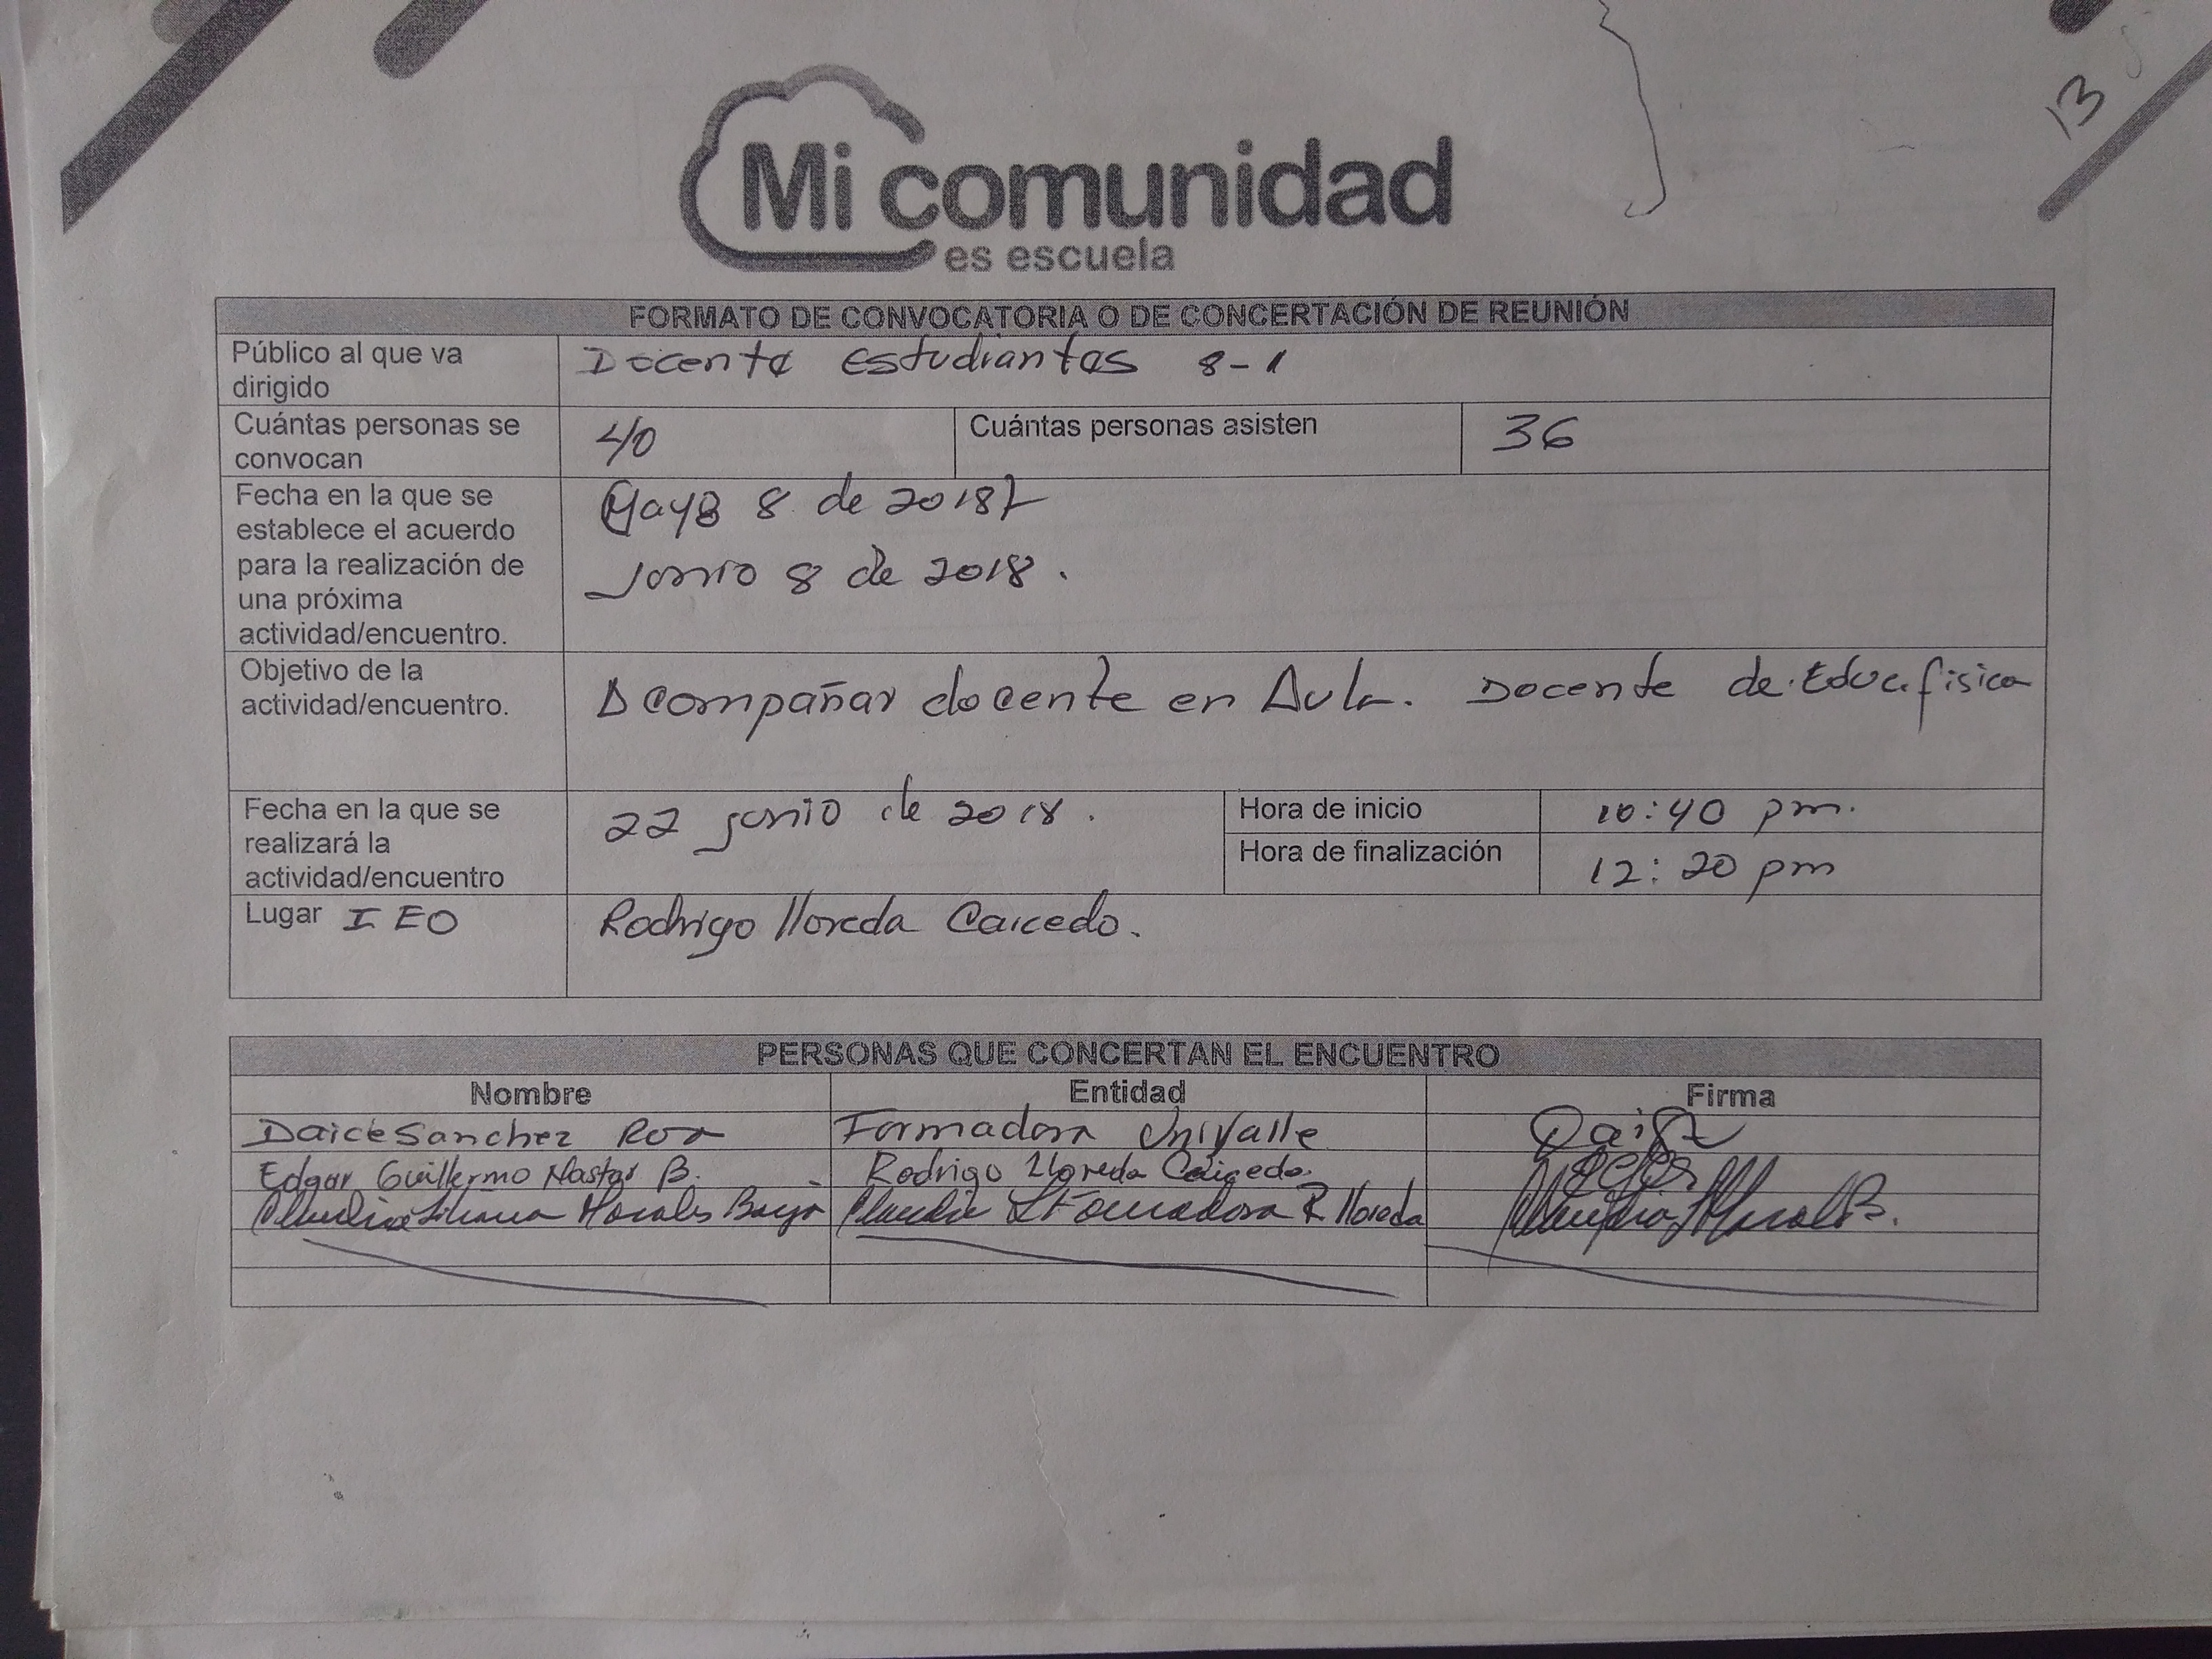 13
Mi comunidad
es escuela
FORMATO DE CONVOCATORIA O DE CONCERTACIÓN DE REUNIÓN
Público al que va
dirigido
Docente estudiantes 8-1
Cuántas personas se
convocan
40
Cuántas personas asisten
36
Fecha en la que se
establece el acuerdo
para la realización de
una próxima
actividad/encuentro.
Mayo 8 de 2018
Junio 8 de 2018.
Objetivo de la
actividad/encuentro.
Acompañar docente en Aula. Docente de Educ. fisica
Fecha en la que se
realizará la
actividad/encuentro
22 junio de 2018.
Hora de inicio
10:40 pm.
Hora de finalización
12:20 pm
Lugar IEO
Rodrigo lloreda Caicedo.
PERSONAS QUE CONCERTAN EL ENCUENTRO
Nombre Entidad Firma
Daice Sanchez Formadora Univalle
Edgar Guillermo Nastar B. Rodrigo Lloreda Caicedo.
Claudia Liliana Morales Formadora R lloreda